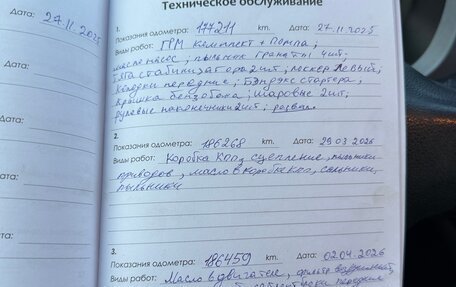 Техническое обслуживание
24.11.2025
1.
Показания одометра: 177211 km. Дата: 27.11.2025
Виды работ: ГРМ комплект + Помпа,
маслонасос; пыльник гранаты 4 шт.
тяга стабилизатора 2 шт; лоскер левый;
Колодки передние; Бэндрэкс стартера;
крышка бензобака; шаровые 2 шт,
рулевые наконечники 2 шт; развал
2.
Показания одометра: 186268 km. Дата: 29.03.2026
Виды работ: Коробка КПП, сцепление, пыльники
приводов, масло в коробке КПП, сальники,
пыльники
3.
Показания одометра: 186459 km. Дата: 02.04.2026
Виды работ: Масло в двигателе, фильтр воздушный,
передние
Дата:
Дата: